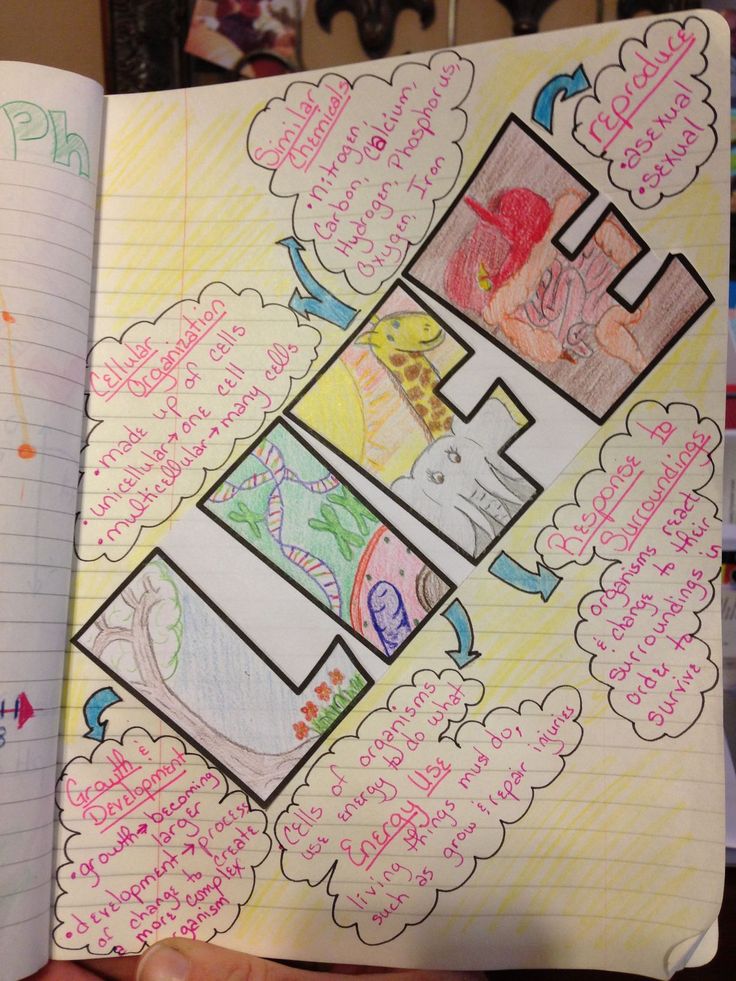 Ph
Similar
Chemicals
• Nitrogen,
Carbon, Calcium,
Hydrogen, Phosphorus,
Oxygen, Iron
reproduce
• asexual
• sexual
Cellular
Organization
• made up of cells
• unicellular → one cell
• multicellular → many cells
LIFE
Response to
Surroundings
organisms react
& change to their
surroundings in
order to
survive
Growth &
Development
• growth → becoming
larger
• development → process
of change to create
a more complex
organism
Cells of organisms
use energy to do what
Energy Use
living things must do,
such as grow & repair injuries